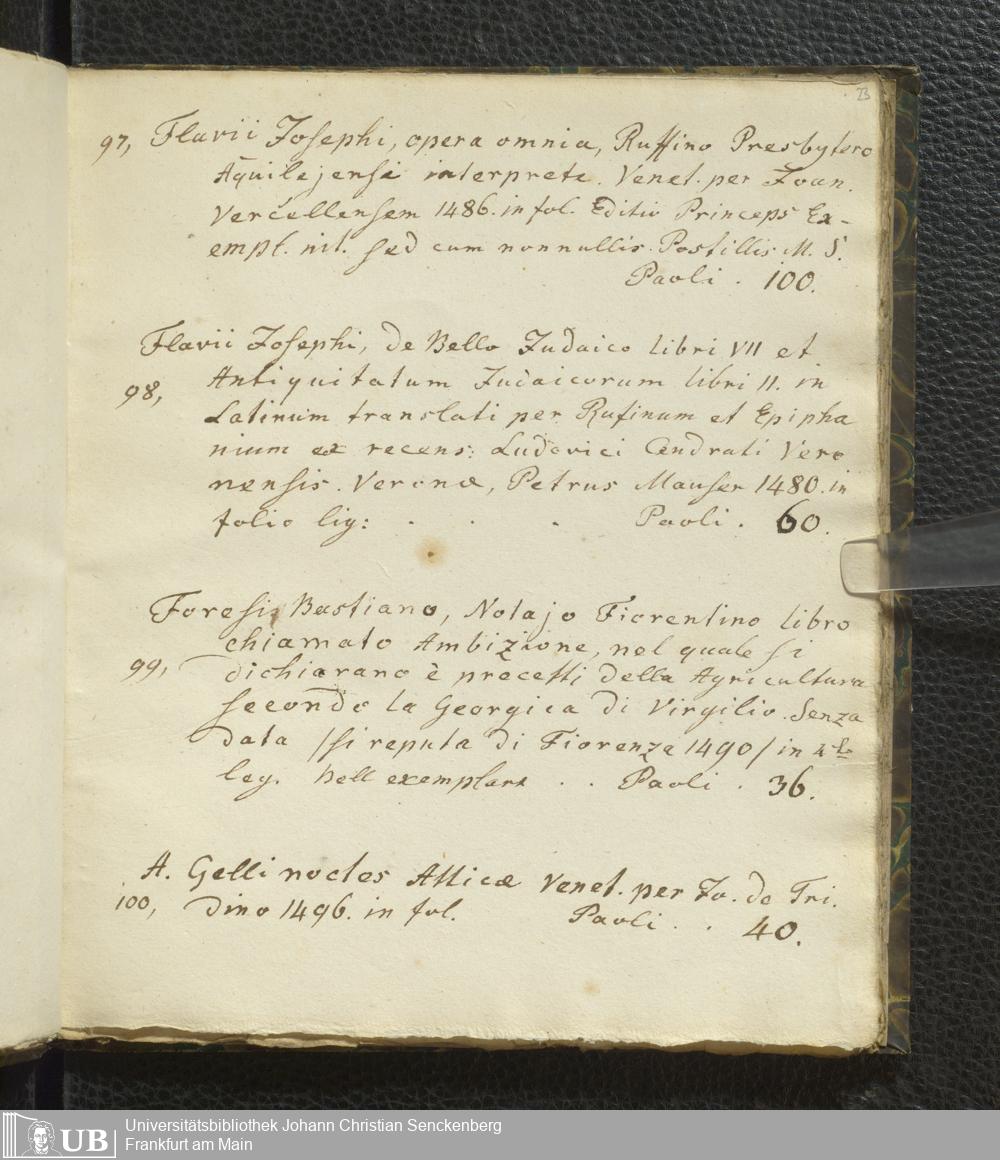 23
97, Flavii Josephi, opera omnia, Ruffino Presbytero
Aquilejensi interprete. Venet. per Joan.
Vercellensem 1486. in fol. Editio Princeps Ex-
empl. nit. sed cum nonnullis Postillis M. S.
Paoli . 100.
Flavii Josephi, de Bello Judaico libri VII et
98, Antiquitatum Judaicorum libri II. in
Latinum translati per Rufinum et Epipha
nium ex recens: Ludovici Cendrati Vero
nensis. Veronæ, Petrus Mauser 1480. in
folio lig: . . . Paoli . 60.
Foresi Bastiano, Notajo Fiorentino libro
chiamato Ambizione, nel quale si
99, dichiarano è precetti della Agricultura
secondo la Georgica di Virgilio. Senza
data /si reputa di Fiorenza 1490/ in 4to
leg. bell exemplare . . Paoli . 36.
A. Gelli noctes Atticæ Venet. per Jo. de Tri.
100, dino 1496. in fol. Paoli . . 40.
UB Universitätsbibliothek Johann Christian Senckenberg
Frankfurt am Main